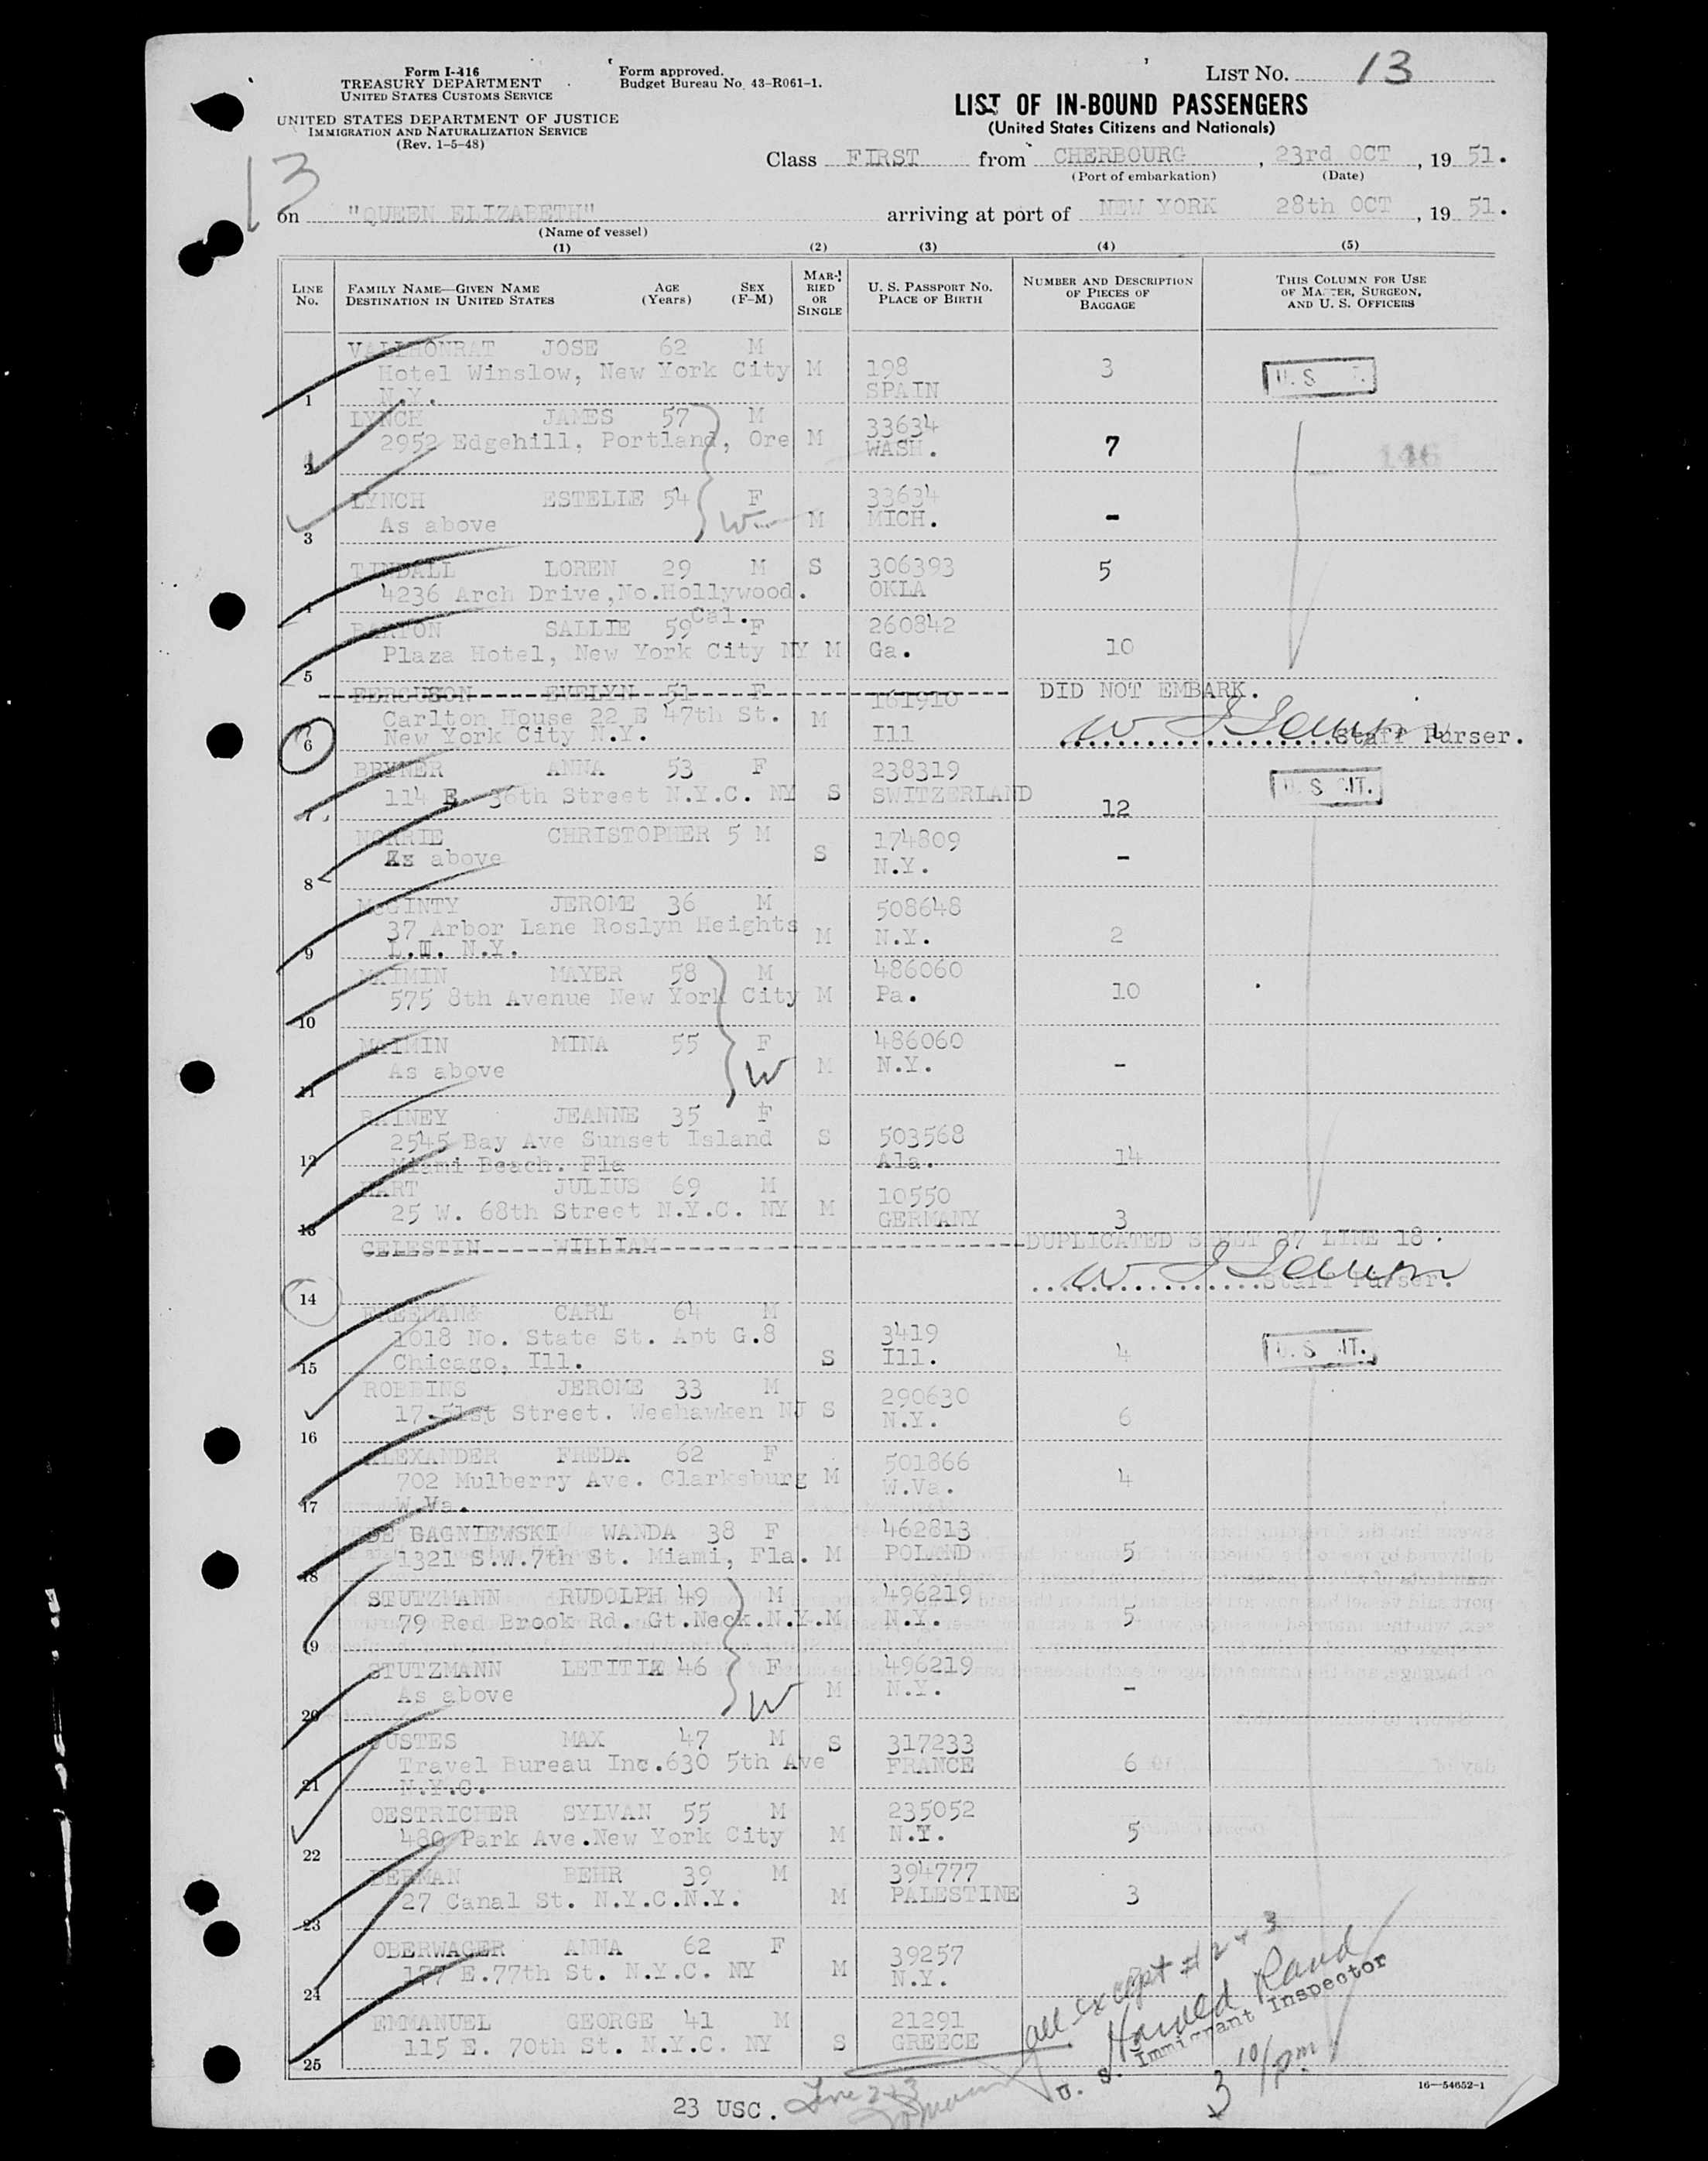 Form I-416
TREASURY DEPARTMENT
UNITED STATES CUSTOMS SERVICE
UNITED STATES DEPARTMENT OF JUSTICE
IMMIGRATION AND NATURALIZATION SERVICE
(Rev. 1-5-48)
Form approved.
Budget Bureau No. 43-R061-1.
LIST NO. 13
LIST OF IN-BOUND PASSENGERS
(United States Citizens and Nationals)
13
Class FIRST from CHERBOURG, 23rd OCT, 19 51.
(Port of embarkation) (Date)
on "QUEEN ELIZABETH" arriving at port of NEW YORK 28th OCT, 19 51.
(Name of vessel)
(1) (2) (3) (4) (5)
LINE NO. FAMILY NAME—GIVEN NAME DESTINATION IN UNITED STATES AGE (Years) SEX (F-M) MARRIED OR SINGLE U. S. PASSPORT NO. PLACE OF BIRTH NUMBER AND DESCRIPTION OF PIECES OF BAGGAGE THIS COLUMN FOR USE OF MASTER, SURGEON, AND U. S. OFFICERS
VALLHONRAT JOSE 62 M
Hotel Winslow, New York City M 198 3 U. S.
1 N.Y. SPAIN
LYNCH JAMES 57 M 33634
2952 Edgehill, Portland, Ore M WASH. 7 146
2
LYNCH ESTELLE 54 F 33634
As above W M MICH. -
3
TINDALL LOREN 29 M S 306393 5
4236 Arch Drive, No.Hollywood. OKLA
4 Cal.
BARTON SALLIE 59 F 260842
Plaza Hotel, New York City NY M Ga. 10
5
FERGUSON EVELYN 51 F 161910 DID NOT EMBARK.
Carlton House 22 E 47th St. M
6 New York City N.Y. Ill Staff Purser.
BRYNER ANNA 53 F 238319 U. S. CIT.
114 E. 36th Street N.Y.C. NY S SWITZERLAND 12
7
NORRIE CHRISTOPHER 5 M 174809
As above S N.Y. -
8
McGINTY JEROME 36 M 508648
37 Arbor Lane Roslyn Heights M N.Y. 2
9 L.I. N.Y.
MAIMIN MAYER 58 M 486060
575 8th Avenue New York City M Pa. 10
10
MAIMIN MINA 55 F 486060
As above W M N.Y. -
11
RAINEY JEANNE 35 F
2545 Bay Ave Sunset Island S 503568
12 Miami Beach. Fla Ala. 14
HART JULIUS 69 M 10550
25 W. 68th Street N.Y.C. NY M GERMANY 3
13
CELESTIN WILLIAM DUPLICATED SHEET 37 LINE 18.
14 Staff Purser.
FREEMAN CARL 64 M
1018 No. State St. Apt G.8 3419 U. S. CIT.
15 Chicago, Ill. S Ill. 4
ROBBINS JEROME 33 M 290630
17-51st Street. Weehawken NJ S N.Y. 6
16
ALEXANDER FREDA 62 F 501866
702 Mulberry Ave. Clarksburg M W.Va. 4
17 W.Va.
DE GAGNIEWSKI WANDA 38 F 462813
1321 S.W.7th St. Miami, Fla. M POLAND 5
18
STUTZMANN RUDOLPH 49 M 496219
79 Red Brook Rd. Gt.Neck.N.Y. M N.Y. 5
19
STUTZMANN LETITIA 46 F 496219
As above W M N.Y. -
20
JUSTES MAX 47 M S 317233
Travel Bureau Inc.630 5th Ave FRANCE 6
21 N.Y.C.
OESTRICHER SYLVAN 55 M 235052
480 Park Ave.New York City M N.Y. 5
22
BERMAN BEHR 39 M 394777
27 Canal St. N.Y.C.N.Y. M PALESTINE 3
23
OBERWAGER ANNA 62 F 39257
177 E.77th St. N.Y.C. NY M N.Y.
24
EMMANUEL GEORGE 41 M 21291
115 E. 70th St. N.Y.C. NY S GREECE
25
all except #2 & 3
Harold Rand
U. S. Immigrant Inspector
3 10/pm
16—54652-1
23 USC. Line 2 & 3